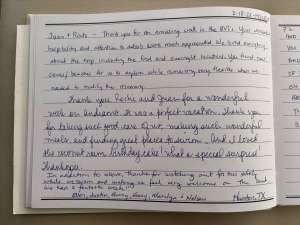 Juan + Rosie - Thank you for an amazing week in the BVI's. Your
hospitality and attention to details were much appreciated. We loved everything
about the trip, including the food and overnight locations. You found
coves/beaches for us to explore while remaining very flexible when we
needed to modify the itinerary.
Thank you Rosie and Juan for a wonderful
week on Andiamo. It was a perfect vacation. Thank you
for taking such good care of us, making such wonderful
meals, and finding great places to swim. And I loved
the coconut rum birthday cake! What a special surprise!
In addition to above, thanks for watching out for our safety
while we swam and making us feel very welcome on the boat
We had a fantastic week!!!
Houston, TX